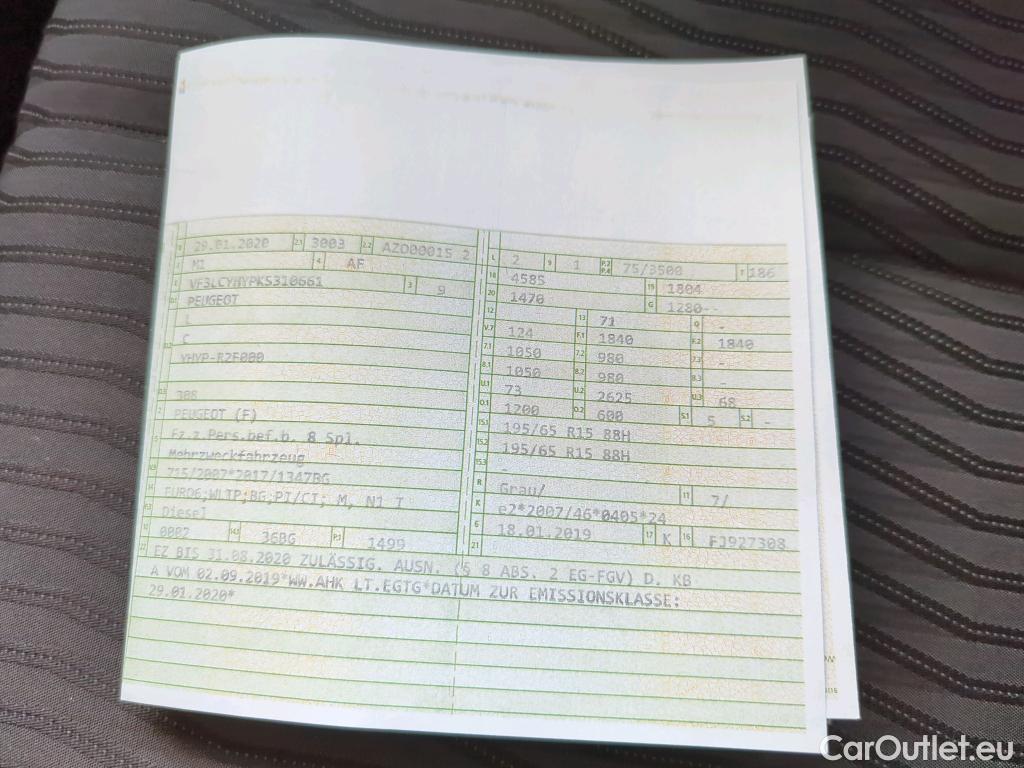 B 29.01.2020 2.1 3003 2.2 AZD00015 2
J M1 4 AF
E VF3LCYHYPKS310661 3 9
D.1 PEUGEOT
L
D.2 C
YHYP-R2F000
D.3 308
2 PEUGEOT (F)
5 Fz.z.Pers.bef.b. 8 Spl.
Mehrzweckfahrzeug
V.9 715/2007*2017/1347BG
14 EURO6;WLTP;BG;PI/CI; M, N1 I
P.3 Diesel
10 0002 14.1 36BG P.1 1499
L 2 9 1 P.2 P.4 75/3500 T 186
18 4585 19 1804
20 1470 G 1280--
12 13 71 Q -
V.7 124 F.1 1840 F.2 1840
7.1 1050 7.2 980 7.3 -
8.1 1050 8.2 980 8.3 -
U.1 73 U.2 2625 U.3 68
O.1 1200 O.2 600 S.1 5 S.2 -
15.1 195/65 R15 88H
15.2 195/65 R15 88H
15.3 -
R Grau/ 11 7/
K e2*2007/46*0405*24
6 18.01.2019 17 K 16 FJ927308
21
22 EZ BIS 31.08.2020 ZULÄSSIG. AUSN. (§ 8 ABS. 2 EG-FGV) D. KB
A VOM 02.09.2019*WW.AHK LT.EGTG*DATUM ZUR EMISSIONSKLASSE:
29.01.2020*
CarOutlet.eu